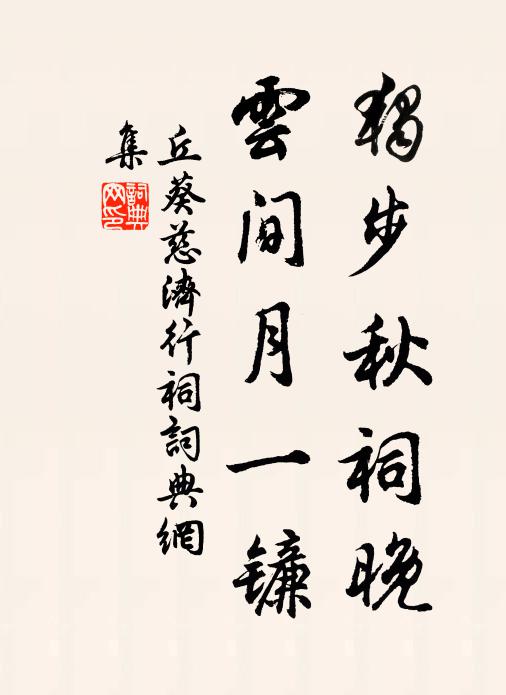 獨步秋祠晚
雲間月一鐮
丘葵慈濟行祠詞典網
集
詞典
网印